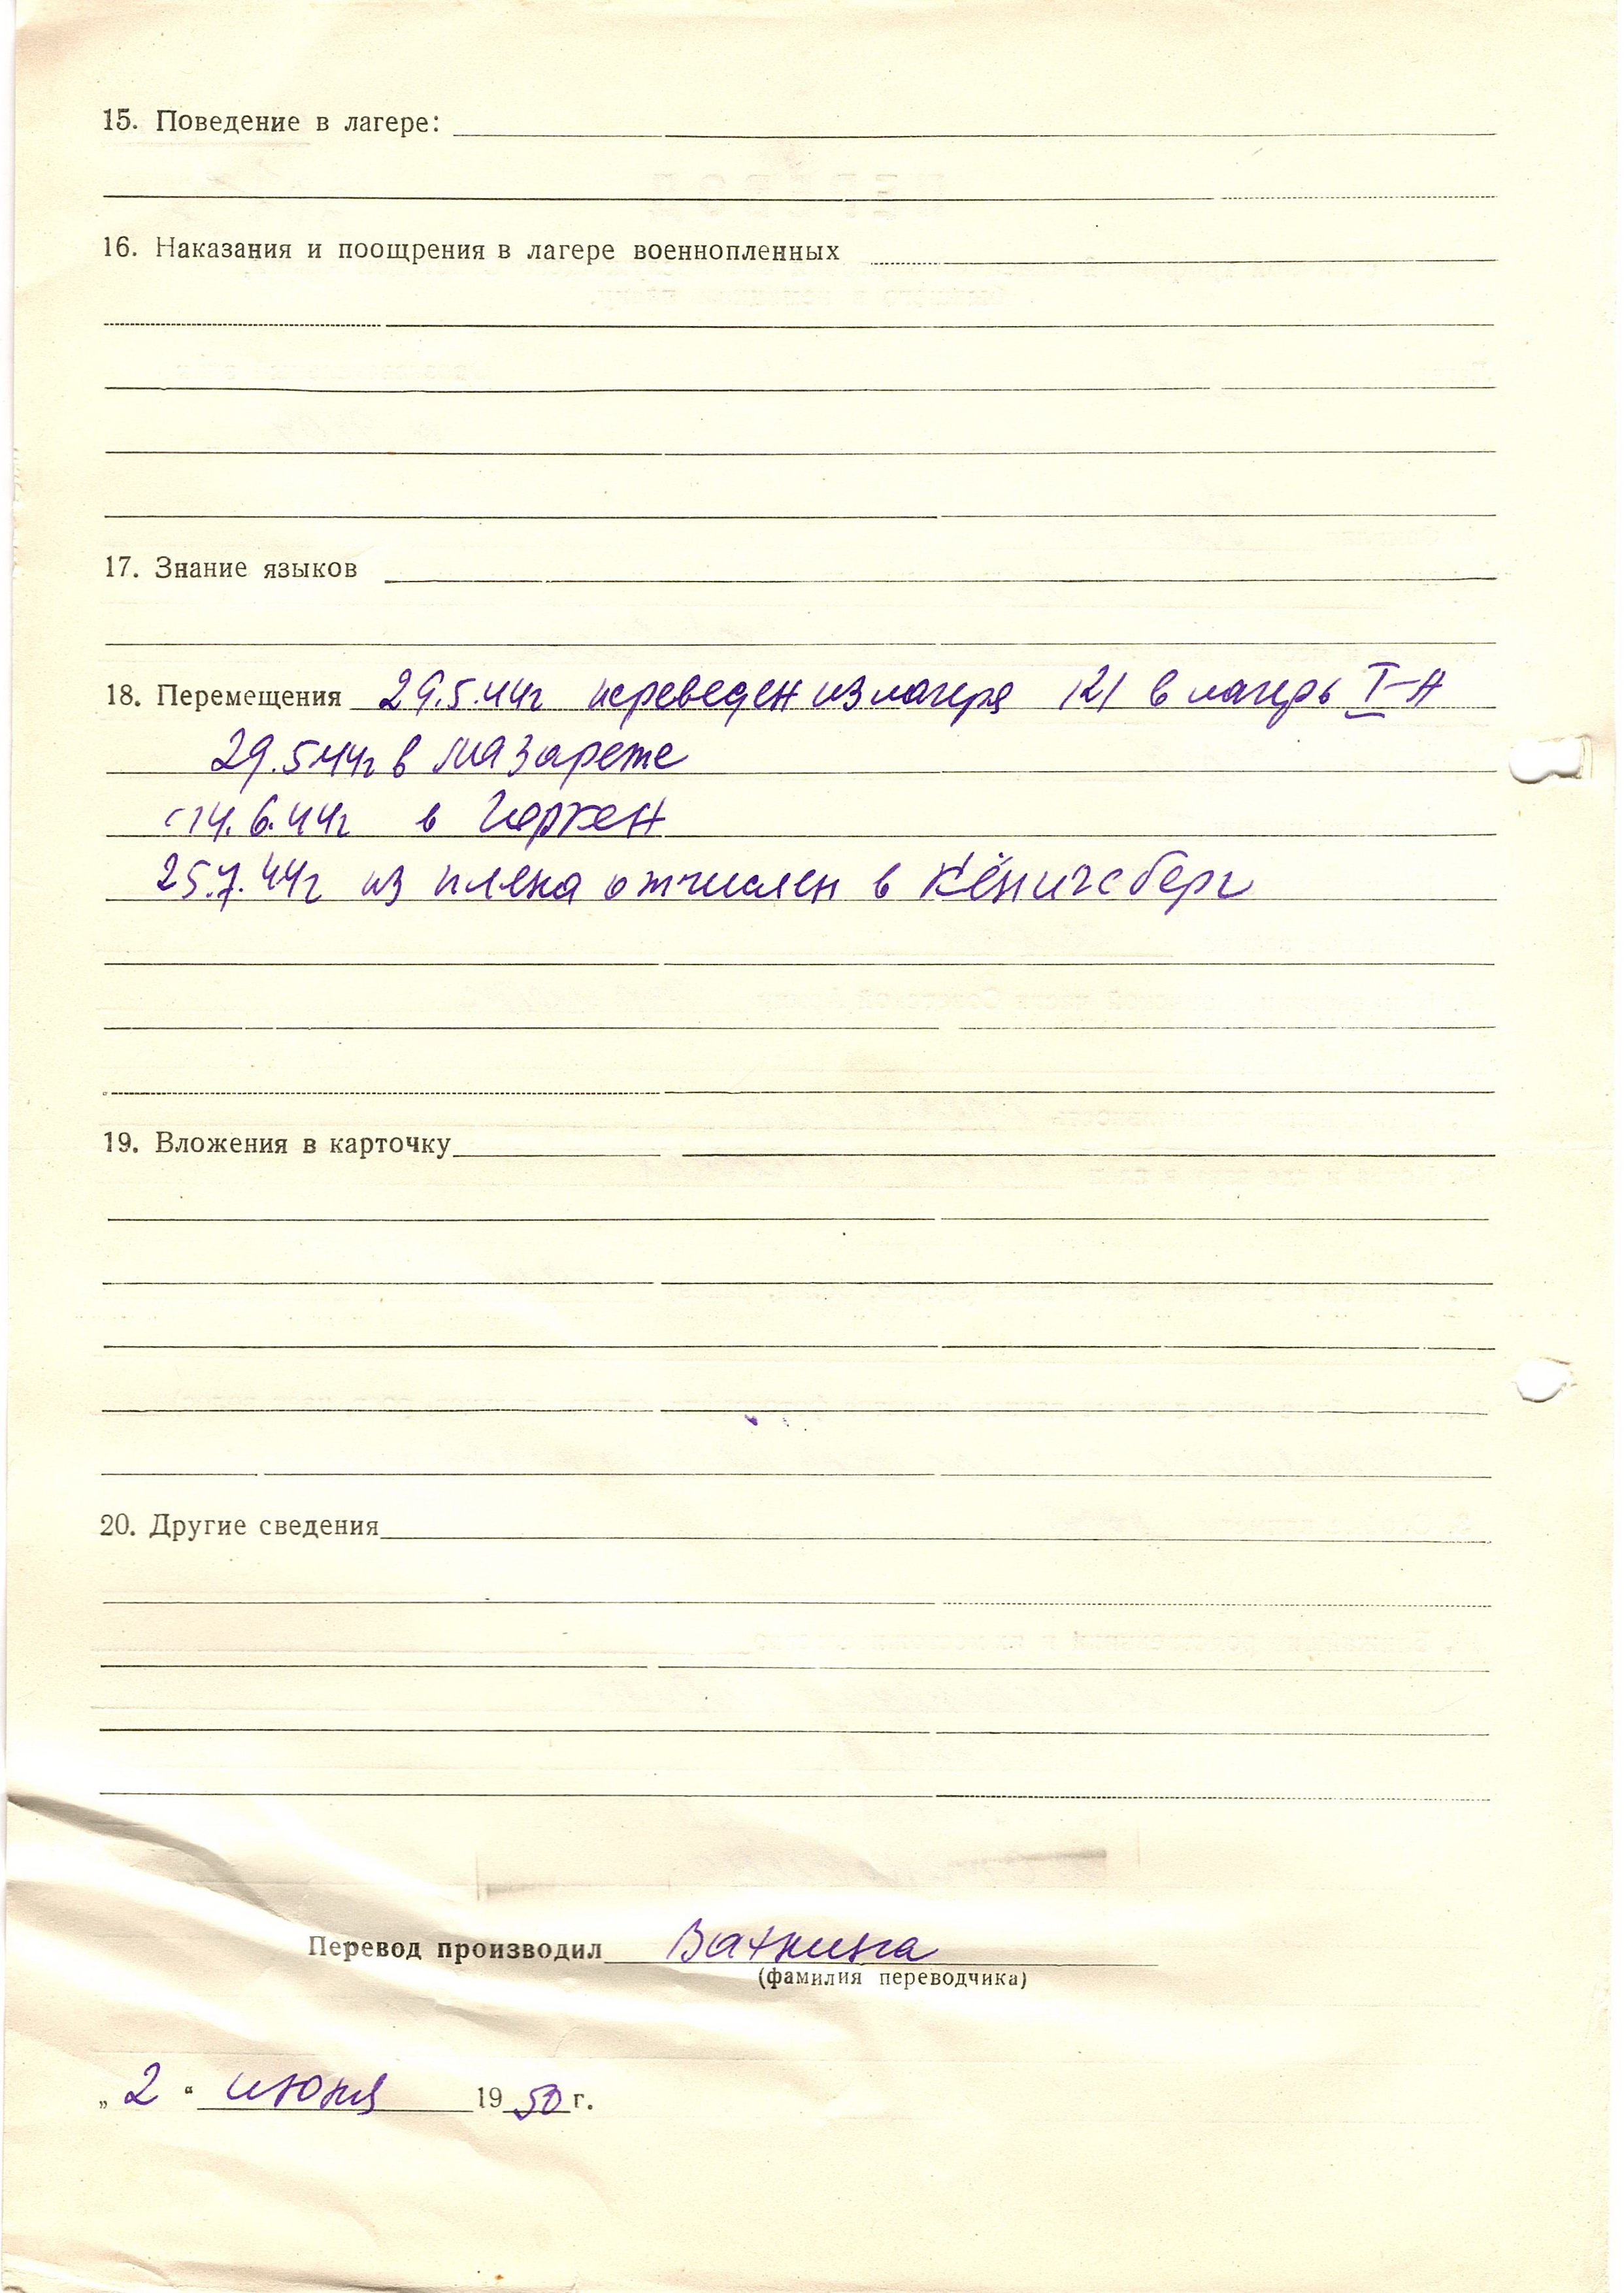 15. Поведение в лагере:
16. Наказания и поощрения в лагере военнопленных
17. Знание языков
18. Перемещения 29.5.44г переведен из лагеря 121 в лагерь I-А
29.5 44г в лазарете
с 14.6.44г в Геркен
25.7.44г из плена отчислен в Кёнигсберг
19. Вложения в карточку
20. Другие сведения
Перевод производил
(фамилия переводчика)
„ 2 “ июня 1950 г.